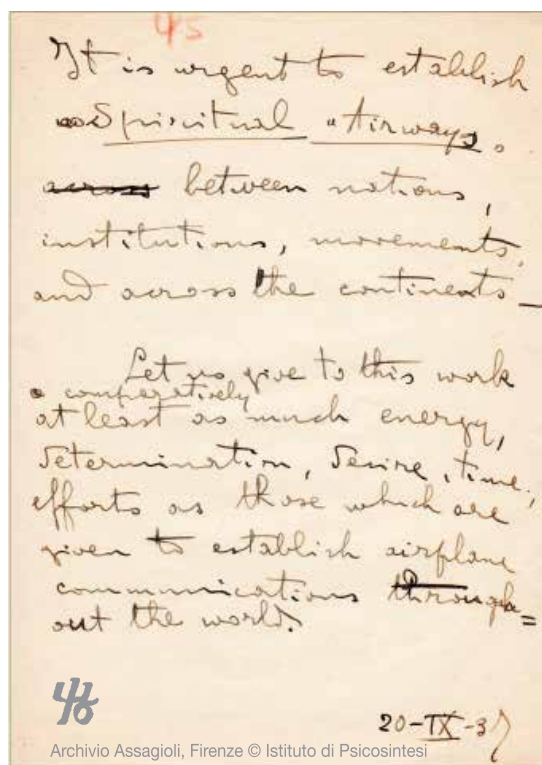 45
It is urgent to establish
Spiritual "Airways"
across between nations,
institutions, movements,
and across the continents —
Let us give to this work
comparatively
at least as much energy,
determination, desire, time,
efforts as those which are
given to establish airplane
communications through=
out the world.
20-IX-37
Archivio Assagioli, Firenze © Istituto di Psicosintesi